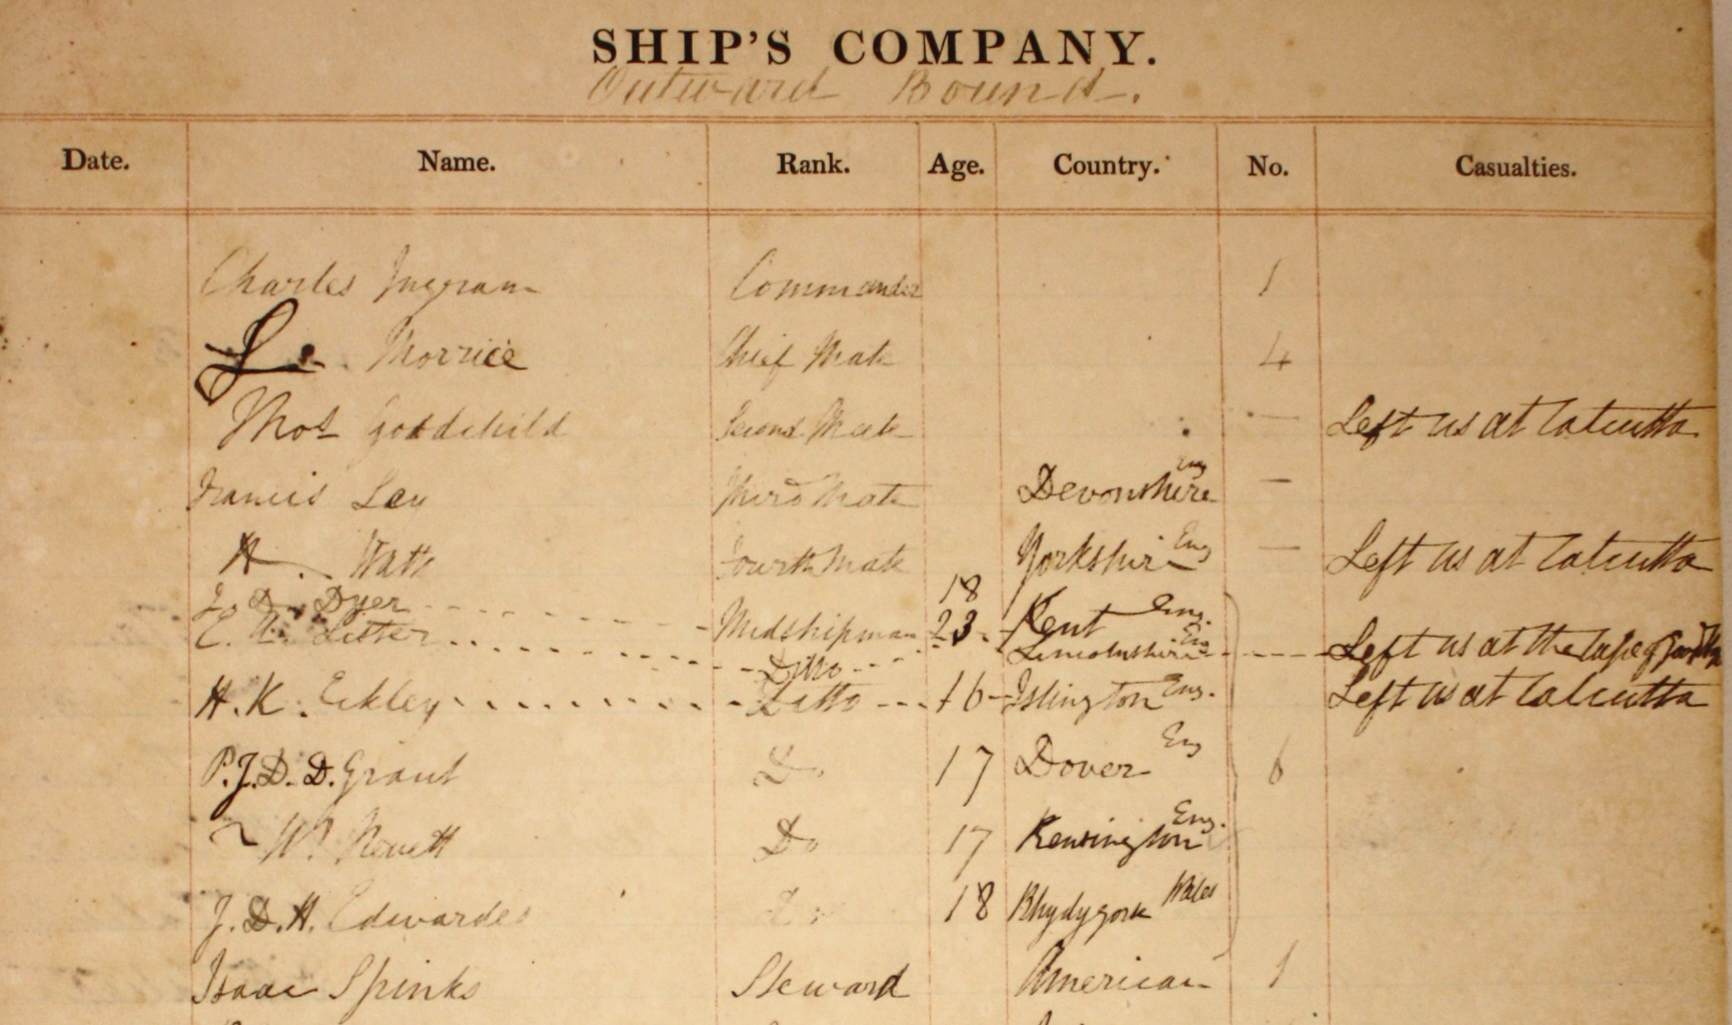 SHIP'S COMPANY.
Outward Bound.
Date. Name. Rank. Age. Country. No. Casualties.
Charles Ingram Commander 1
Morrice Chief Mate 4
Thos Goodchild Second Mate — Left us at Calcutta
Francis Ley Third Mate Devonshire Eng —
H. Watts Fourth Mate Yorkshire Eng — Left us at Calcutta
D. Dyer Midshipman 18 Kent Eng.
E. Lister Ditto 23 Lincolnshire Eng Left us at the Cape of
H. K. Eckley Ditto 16 Islington Eng. Left us at Calcutta
P. J. D. D. Grant Do 17 Dover Eng 6
Wm Do 17 Kensington Eng.
J. D. H. Edwardes Do 18 Rhydygors Wales
Isaac Spinks Steward American 1